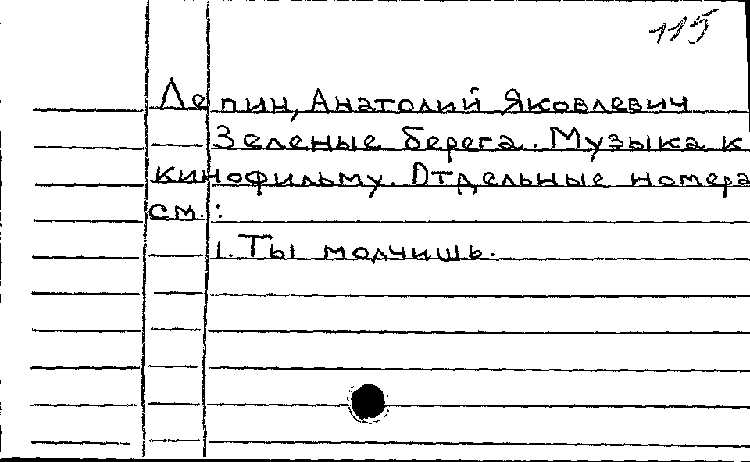 115
Лепин, Анатолий Яковлевич
Зеленые берега. Музыка к
кинофильму. Отдельные номера
см.:
1. Ты молчишь.